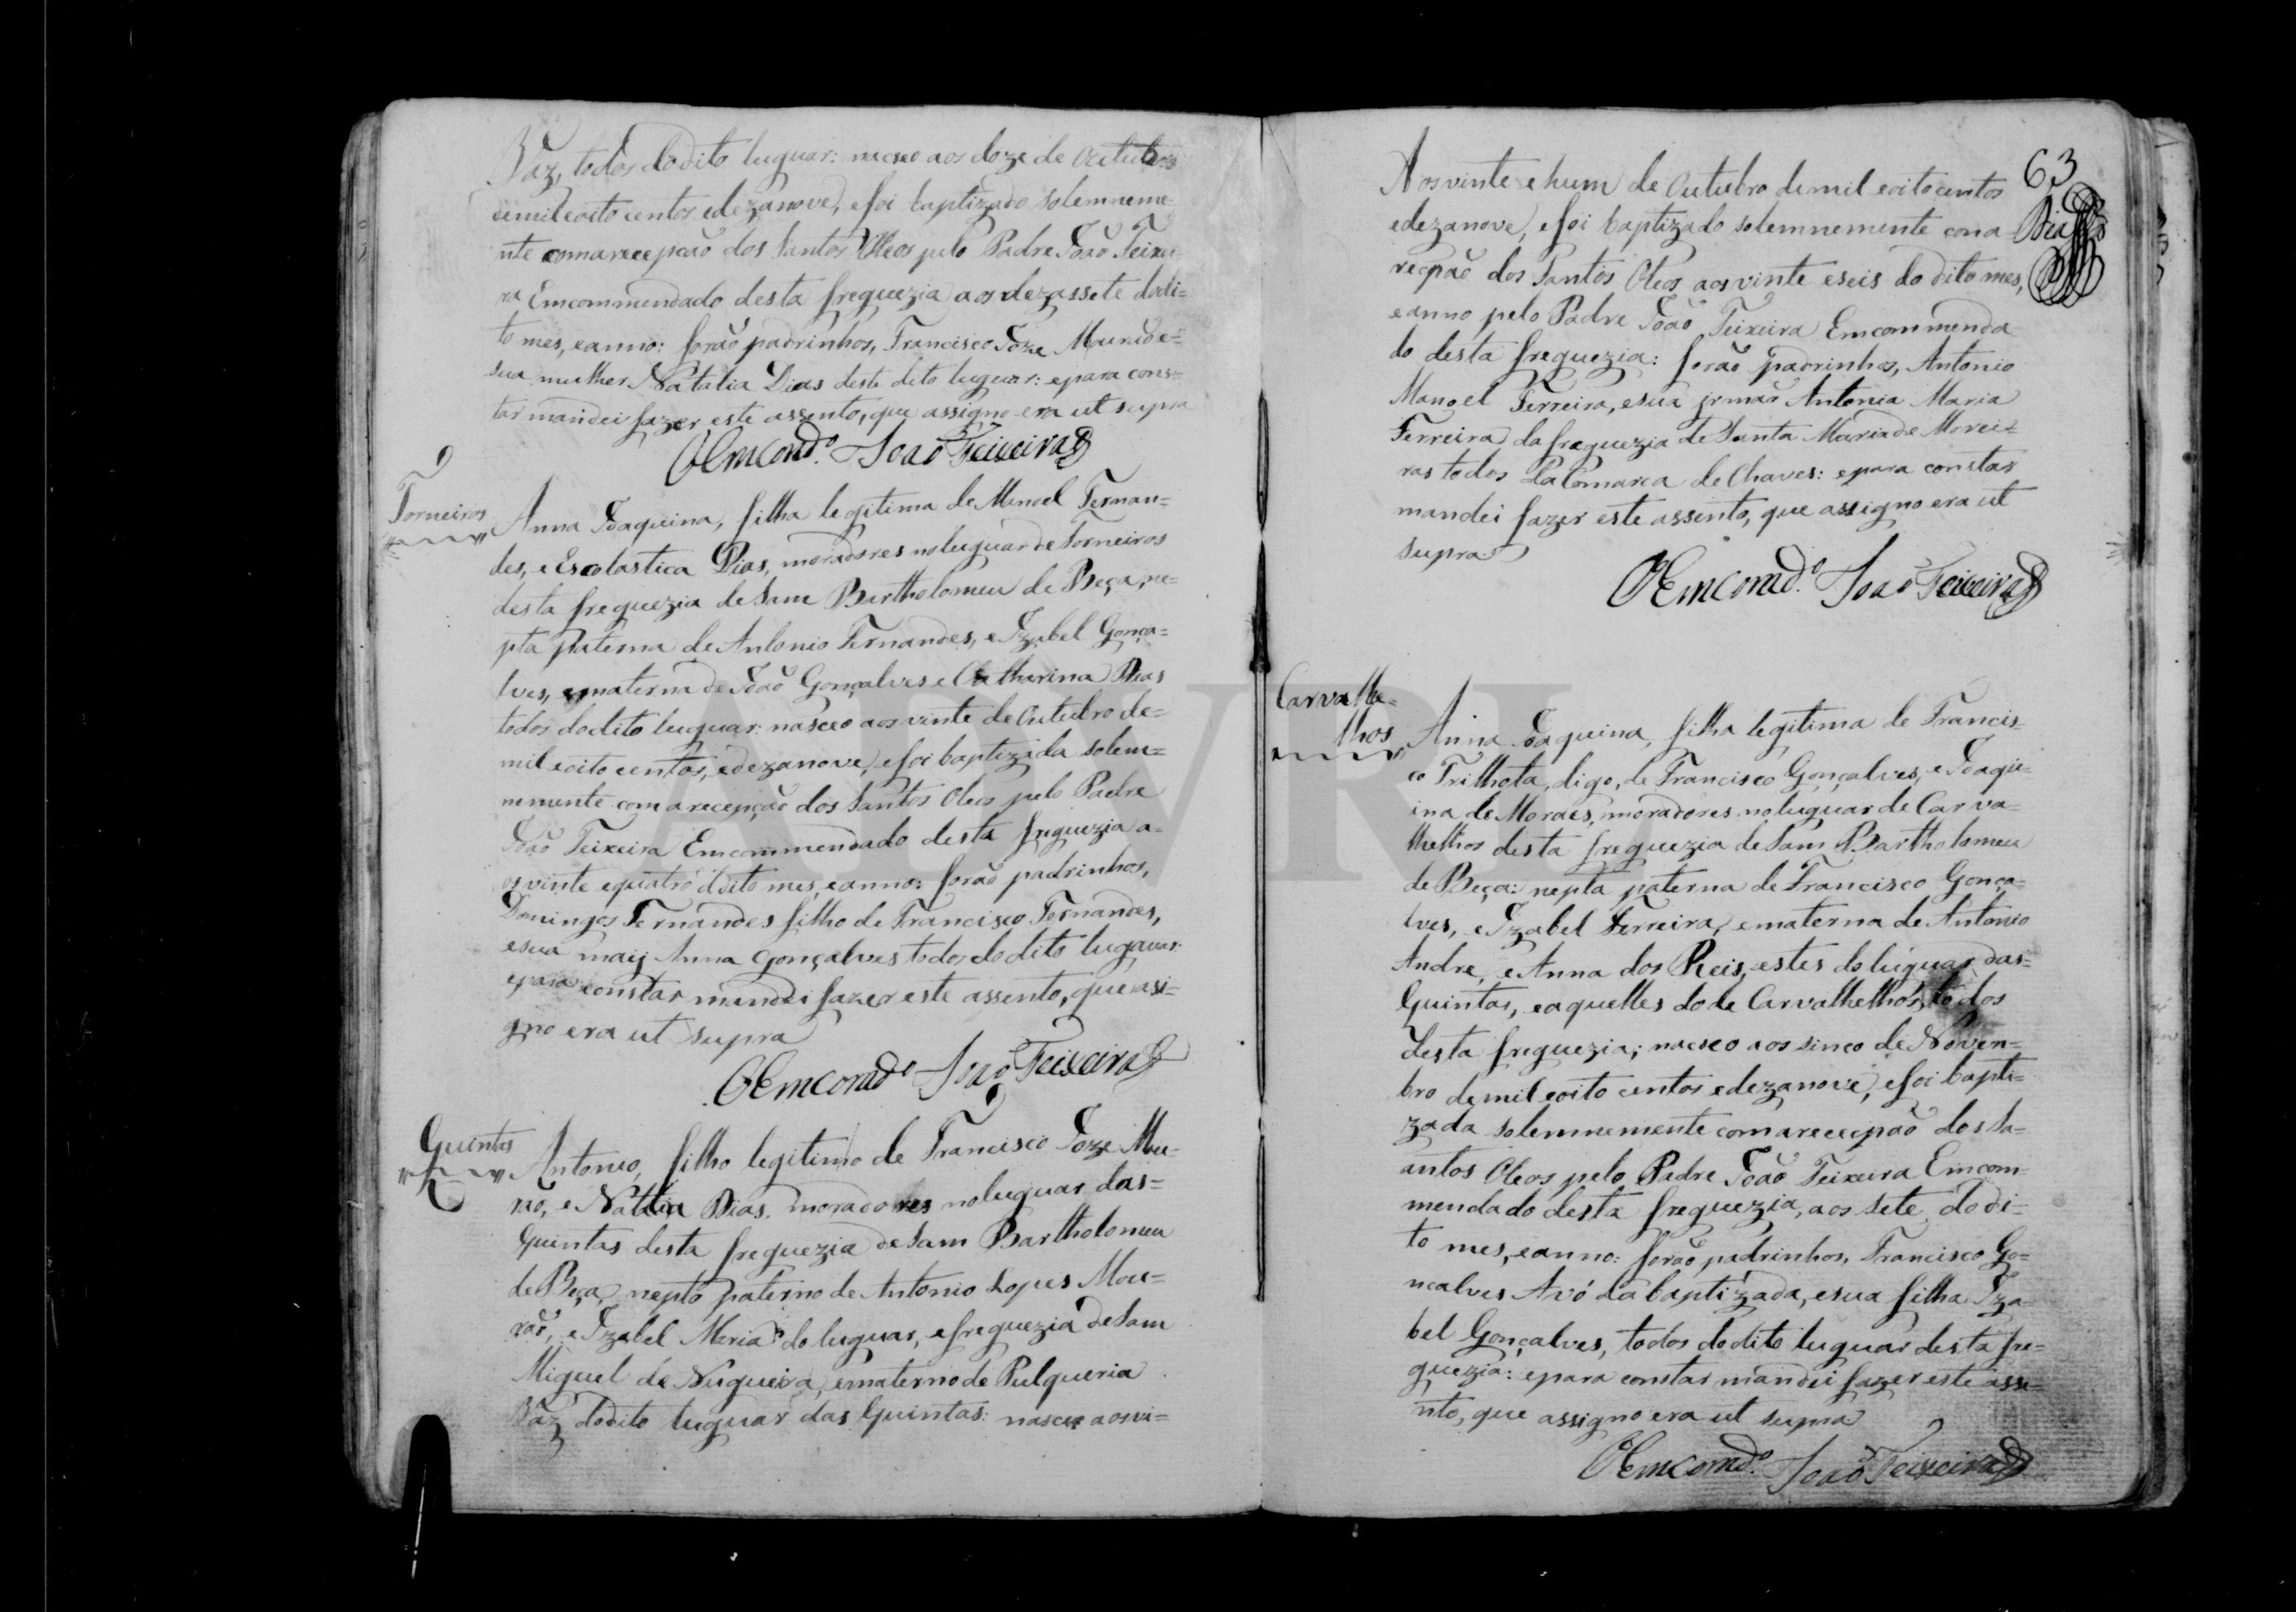 Vaz, todos do dito luguar: nasceo aos doze de Outubro
de mil eoito centos edezanove, efoi baptizado solemneme-
nte comarecepção dos Santos Oleos pelo Padre João Teixei-
ra Emcommendado desta freguezia aos dezassete dodi=
to mes, eanno: forão padrinhos, Francisco Joze Mourão e=
sua mulher Natalia Dias deste dito luguar: epara cons=
tar mandei fazer este assento, que assigno era ut supra
OEmcomd.º João Teixeira
Torneiros
Anna Joaquina, filha legitima de Manoel Fernan=
des, e Escolastica Dias, moradores noluguar de Torneiros
desta freguezia de Sam Bartholomeu de Beça, ne=
pta paterna de Antonio Fernandes, e Izabel Gonça=
lves, ematerna de João Gonçalves e Catharina Dias
todos dodito luguar: nasceo aos vinte de Outubro de=
mil eoito centos, edezanove, efoi baptizada solem=
nemente com arecepção dos Santos Oleos pelo Padre
João Teixeira Emcommendado desta freguezia a-
os vinte equatro ddito mes, eanno: forão padrinhos,
Domingos Fernandes filho de Francisco Fernandes,
esua maij Anna Gonçalves todos do dito lugauar:
epara constar mandei fazer este assento, que asi-
gno era ut supra
OEmcomdº João Teixeira
Quintas
Antonio, filho legitimo de Francisco Joze Mou-
rão, e Natalia Dias, moradores noluguar das=
Quintas desta freguezia de Sam Bartholomeu
de Beça, nepto paterno de Antonio Lopes Mou=
rão, e Izabel Maria do luguar, efreguezia de Sam
Miguel de Nugueira, ematerno de Pulqueria
Vaz dodito luguar das Quintas: nasceo aosvi=
63
Aosvinte ehum de Outubro demil eoitocentos
edezanove, efoi baptizado solemnemente coma
recpão dos Santos Oleos aos vinte eseis do dito mes,
eanno pelo Padre João Teixeira Emcommenda
do desta freguezia: forão padrinhos, Antonio
Manoel Ferreira, esua jrmãa Antonia Maria
Ferreira da freguezia de Santa Maria de Morei=
ras todos da Comarca de Chaves: epara constar
mandei fazer este assento, que assigno era ut
supra
OEmcomd.º João Teixeira
Carvalhe=
lhos
Anna Joaquina, filha legitima de Francis-
co Trilhota, digo, de Francisco Gonçalves, e Joaqu-
ina de Moraes, moradores noluguar de Carva-
lhelhos desta freguezia de Sam Bartholomeu
de Beça: nepta paterna de Francisco Gonça-
lves, e Izabel Ferreira, ematerna de Antonio
Andre, e Anna dos Reis, estes do luguar das=
Quintas, eaquelles dode Carvalhelhos, todos
desta freguezia; nasceo aos sinco de Novem-
bro demil eoito centos edezanove, efoi bapti=
zada solemnemente comarecepção dos Sa-
antos Oleos pelo Padre João Teixeira Emcom-
mendado desta freguezia, aos sete dodi-
to mes, eanno: forão padrinhos, Francisco Go=
ncalves Avó da baptizada, esua filha Iza
bel Gonçalves, todos dodito luguar desta fre=
guezia: epara constar mandei fazer este asse=
nto, que assigno era ut supra
OEmcomd.º João Teixeira